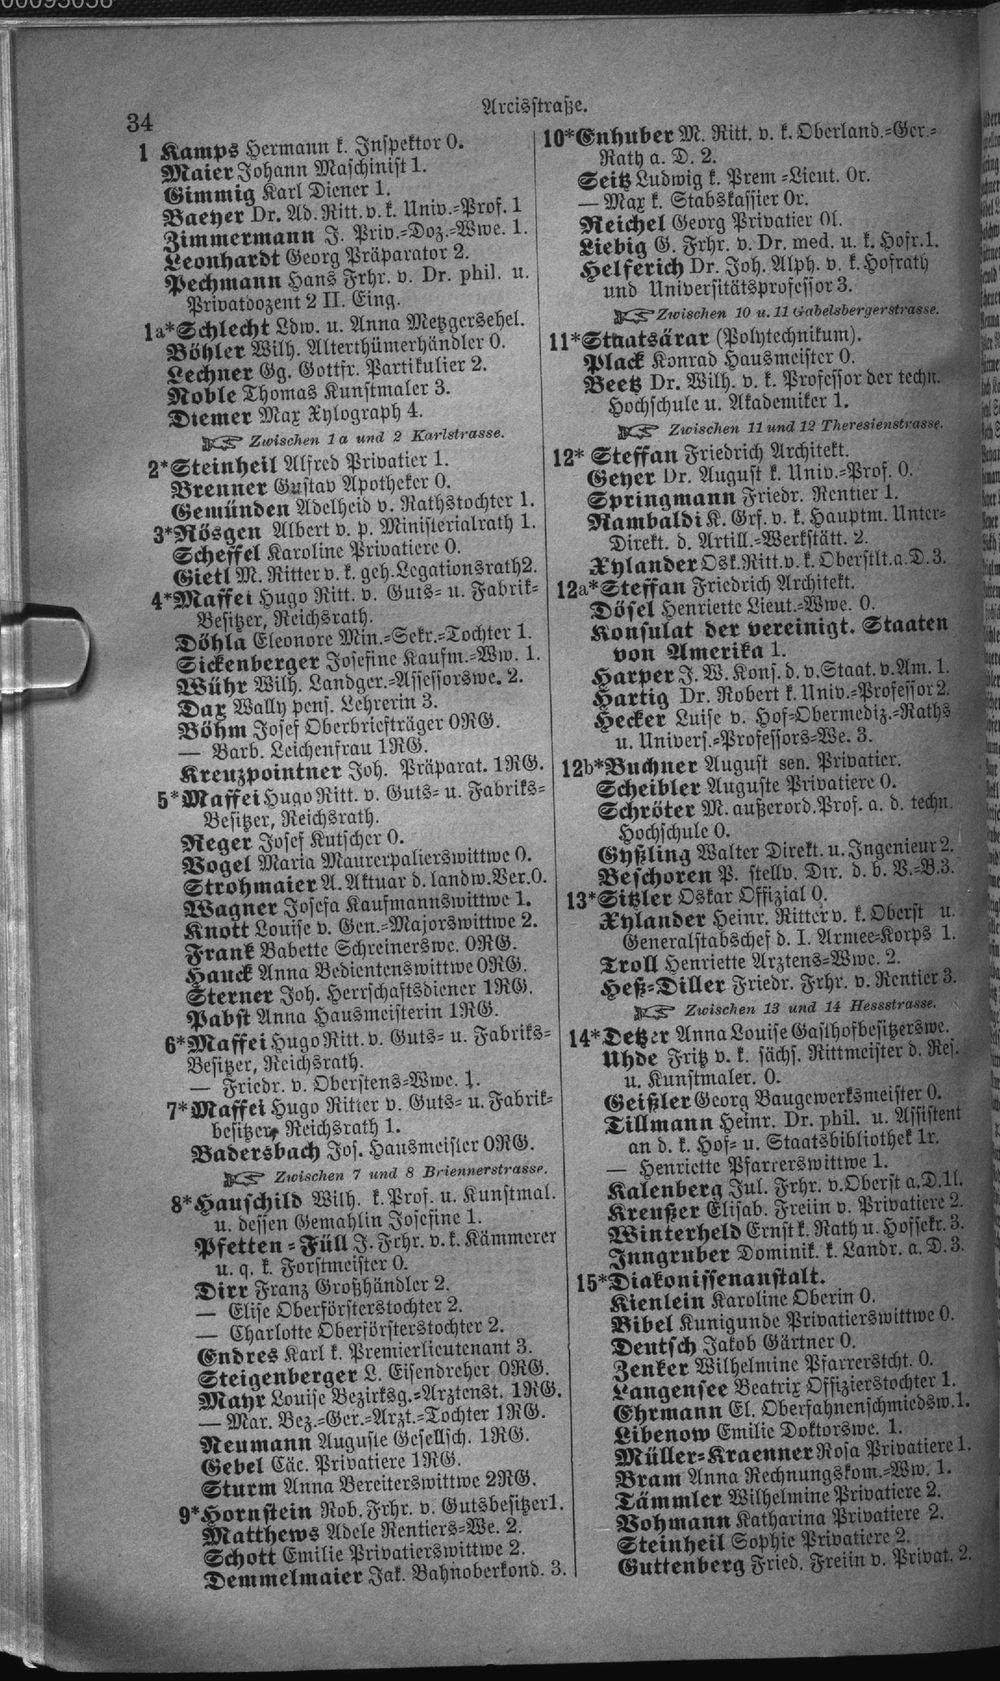 34
Arcisstraße.
1 Kamps Hermann k. Inspektor 0.
Maier Johann Maschinist 1.
Gimmig Karl Diener 1.
Baeyer Dr. Ad. Ritt. v. k. Univ.=Prof. 1
Zimmermann J. Priv.=Doz.=Wwe. 1.
Leonhardt Georg Präparator 2.
Pechmann Hans Frhr. v. Dr. phil. u.
Privatdozent 2 II. Eing.
1a*Schlecht Ldw. u. Anna Metzgersehel.
Böhler Wilh. Alterthümerhändler 0.
Lechner Gg. Gottfr. Partikulier 2.
Noble Thomas Kunstmaler 3.
Diemer Max Xylograph 4.
Zwischen 1a und 2 Karlstrasse.
2*Steinheil Alfred Privatier 1.
Brenner Gustav Apotheker 0.
Gemünden Adelheid v. Rathstochter 1.
3*Rösgen Albert v. p. Ministerialrath 1.
Scheffel Karoline Privatiere 0.
Gietl M. Ritter v. k. geh. Legationsrath 2.
4*Maffei Hugo Ritt. v. Guts= u. Fabrik=
Besitzer, Reichsrath.
Döhla Eleonore Min.=Sekr.=Tochter 1.
Sickenberger Josefine Kaufm.=Ww. 1.
Wühr Wilh. Landger.=Assessorswe. 2.
Dax Wally pens. Lehrerin 3.
Böhm Josef Oberbriefträger 0RG.
— Barb. Leichenfrau 1RG.
Kreuzpointner Joh. Präparat. 1RG.
5*Maffei Hugo Ritt. v. Guts= u. Fabriks=
Besitzer, Reichsrath.
Reger Josef Kutscher 0.
Vogel Maria Maurerpalierswittwe 0.
Strohmaier A. Aktuar d. landw. Ver. 0.
Wagner Josefa Kaufmannswittwe 1.
Knott Louise v. Gen.=Majorswittwe 2.
Frank Babette Schreinerswe. 0RG.
Hauck Anna Bedientenswittwe 0RG.
Sterner Joh. Herrschaftsdiener 1RG.
Pabst Anna Hausmeisterin 1RG.
6*Maffei Hugo Ritt. v. Guts= u. Fabriks=
Besitzer, Reichsrath.
— Friedr. v. Oberstens=Wwe. 1.
7*Maffei Hugo Ritter v. Guts= u. Fabrik=
besitzer, Reichsrath 1.
Badersbach Jos. Hausmeister 0RG.
Zwischen 7 und 8 Briennerstrasse.
8*Hauschild Wilh. k. Prof. u. Kunstmal.
u. dessen Gemahlin Josefine 1.
Pfetten=Füll J. Frhr. v. k. Kämmerer
u. q. k. Forstmeister 0.
Dirr Franz Großhändler 2.
— Elise Oberförsterstochter 2.
— Charlotte Oberförsterstochter 2.
Endres Karl k. Premierlieutenant 3.
Steigenberger L. Eisendreher 0RG.
Mayr Louise Bezirksg.=Arztenst. 1RG.
— Mar. Bez.=Ger.=Arzt.=Tochter 1RG.
Neumann Auguste Gesellsch. 1RG.
Gebel Cäc. Privatiere 1RG.
Sturm Anna Bereiterswittwe 2RG.
9*Hornstein Rob. Frhr. v. Gutsbesitzer 1.
Matthews Adele Rentiers=We. 2.
Schott Emilie Privatierswittwe 2.
Demmelmaier Jak. Bahnoberkond. 3.
10*Enhuber M. Ritt. v. k. Oberland.=Ger.=
Rath a. D. 2.
Seitz Ludwig k. Prem=Lieut. 0r.
— Max k. Stabskassier 0r.
Reichel Georg Privatier 0l.
Liebig G. Frhr. v. Dr. med. u. k. Hofr. 1.
Helferich Dr. Joh. Alph. v. k. Hofrath
und Universitätsprofessor 3.
Zwischen 10 u. 11 Gabelsbergerstrasse.
11*Staatsärar (Polytechnikum).
Plack Konrad Hausmeister 0.
Beetz Dr. Wilh. v. k. Professor der techn.
Hochschule u. Akademiker 1.
Zwischen 11 und 12 Theresienstrasse.
12* Steffan Friedrich Architekt.
Geyer Dr. August k. Univ.=Prof. 0.
Springmann Friedr. Rentier 1.
Rambaldi K. Grf. v. k. Hauptm. Unter=
Direkt. d. Artill.=Werkstätt. 2.
Xylander Osk. Ritt. v. k. Oberstlt. a. D. 3.
12a*Steffan Friedrich Architekt.
Dösel Henriette Lieut.=Wwe. 0.
Konsulat der vereinigt. Staaten
von Amerika 1.
Harper J. W. Kons. d. v. Staat. v. Am. 1.
Hartig Dr. Robert k. Univ.=Professor 2.
Hecker Luise v. Hof=Obermediz.=Raths
u. Univers.=Professors=We. 3.
12b*Buchner August sen. Privatier.
Scheibler Auguste Privatiere 0.
Schröter M. außerord. Prof. a. d. techn.
Hochschule 0.
Gyßling Walter Direkt. u. Ingenieur 2.
Beschoren P. stellv. Dir. d. b. V.=B. 3.
13*Sitzler Oskar Offizial 0.
Xylander Heinr. Ritter v. k. Oberst u.
Generalstabschef d. I. Armee=Korps 1.
Troll Henriette Arztens=Wwe. 2.
Heß=Diller Friedr. Frhr. v. Rentier 3.
Zwischen 13 und 14 Hessstrasse.
14*Detzer Anna Louise Gasthofbesitzerswe.
Uhde Fritz v. k. sächs. Rittmeister d. Res.
u. Kunstmaler. 0.
Geißler Georg Baugewerksmeister 0.
Tillmann Heinr. Dr. phil. u. Assistent
an d. k. Hof= u. Staatsbibliothek 1r.
— Henriette Pfarrerswittwe 1.
Kalenberg Jul. Frhr. v. Oberst a. D. 1l.
Kreußer Elisab. Freiin v. Privatiere 2.
Winterheld Ernst k. Rath u. Hofsekr. 3.
Inngruber Dominik. k. Landr. a. D. 3.
15*Diakonissenanstalt.
Kienlein Karoline Oberin 0.
Bibel Kunigunde Privatierswittwe 0.
Deutsch Jakob Gärtner 0.
Zenker Wilhelmine Pfarrerstcht. 0.
Langensee Beatrix Offizierstochter 1.
Ehrmann El. Oberfahnenschmiedsw. 1.
Libenow Emilie Doktorswe. 1.
Müller=Kraenner Rosa Privatiere 1.
Bram Anna Rechnungskom.=Ww. 1.
Tämmler Wilhelmine Privatiere 2.
Vohmann Katharina Privatiere 2.
Steinheil Sophie Privatiere 2.
Guttenberg Fried. Freiin v. Privat. 2.